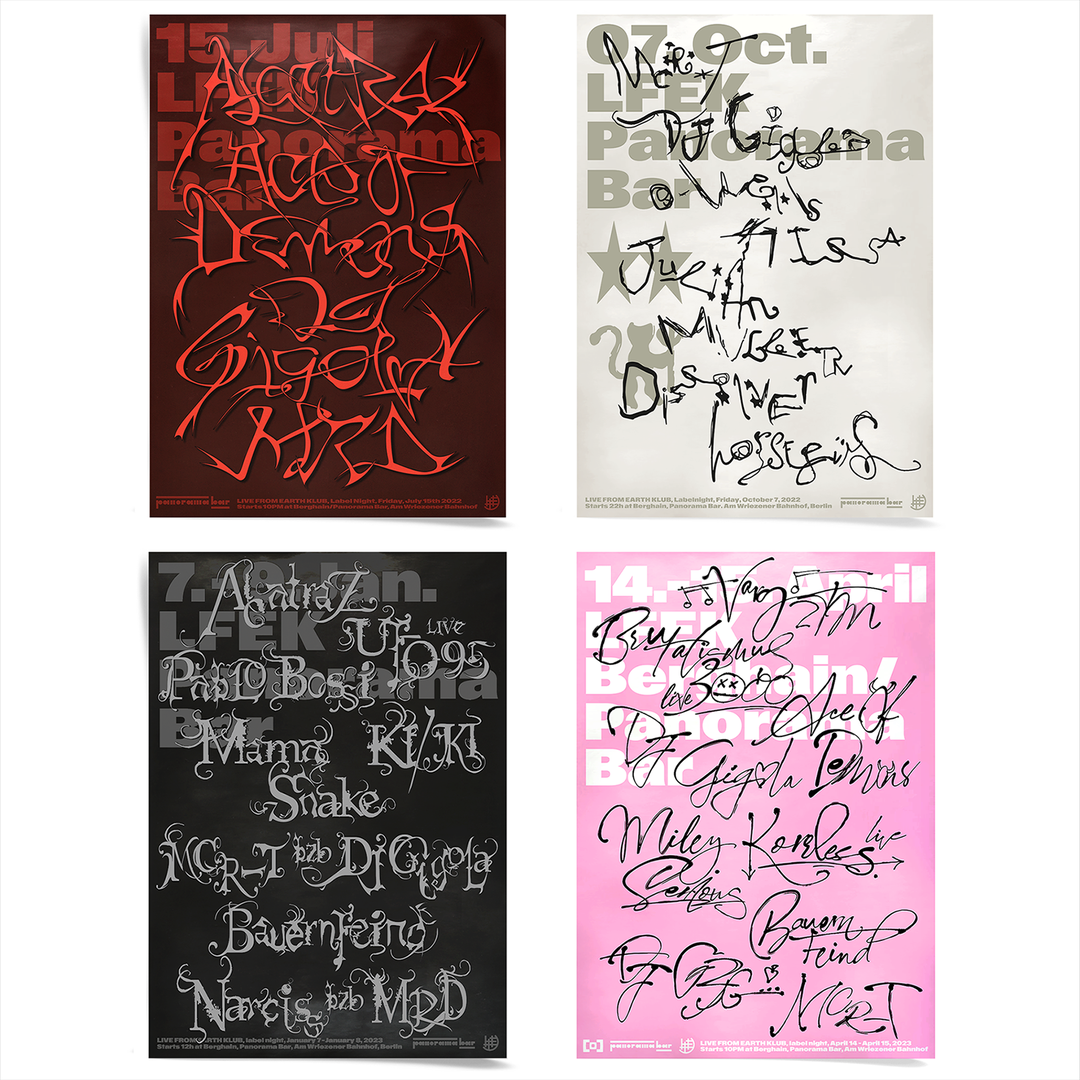 15. Juli
LFEK
Panorama
Bar
Alcatraz
Ace of
Demons
DJ
Gigola
MRD
panorama bar
LIVE FROM EARTH KLUB, Label Night, Friday, July 15th 2022
Starts 10PM at Berghain/Panorama Bar, Am Wriezener Bahnhof
07. Oct.
LFEK
Panorama
Bar
MCR-T
DJ Gigola
B-Wells
Julian
Muller
Dis
horsegiirL
LIVE FROM EARTH KLUB, Labelnight, Friday, October 7, 2022
Starts 22h at Berghain, Panorama Bar. Am Wriezener Bahnhof, Berlin
panorama bar
7.-8. Jan.
LFEK
Panorama
Bar
AlcatraZ
UFO95 LIVE
Pablo Bozzi
Mama KI/KI
Snake
MCR-T b2b DJ Gigola
Bauernfeind
Narciss b2b MRD
LIVE FROM EARTH KLUB, label night, January 7-January 8, 2023
Starts 12h at Berghain, Panorama Bar, Am Wriezener Bahnhof, Berlin
panorama bar
14.-15. April
LFEK
Berghain/
Panorama
Bar
Varg2TM
Brutalismus
live 3000
Ace of
DJ Gigola Demons
Miley Korless live
Serious
Bauern
feind
DJ
MCR-T
panorama bar
LIVE FROM EARTH KLUB, label night, April 14 - April 15, 2023
Starts 10PM at Berghain, Panorama Bar, Am Wriezener Bahnhof